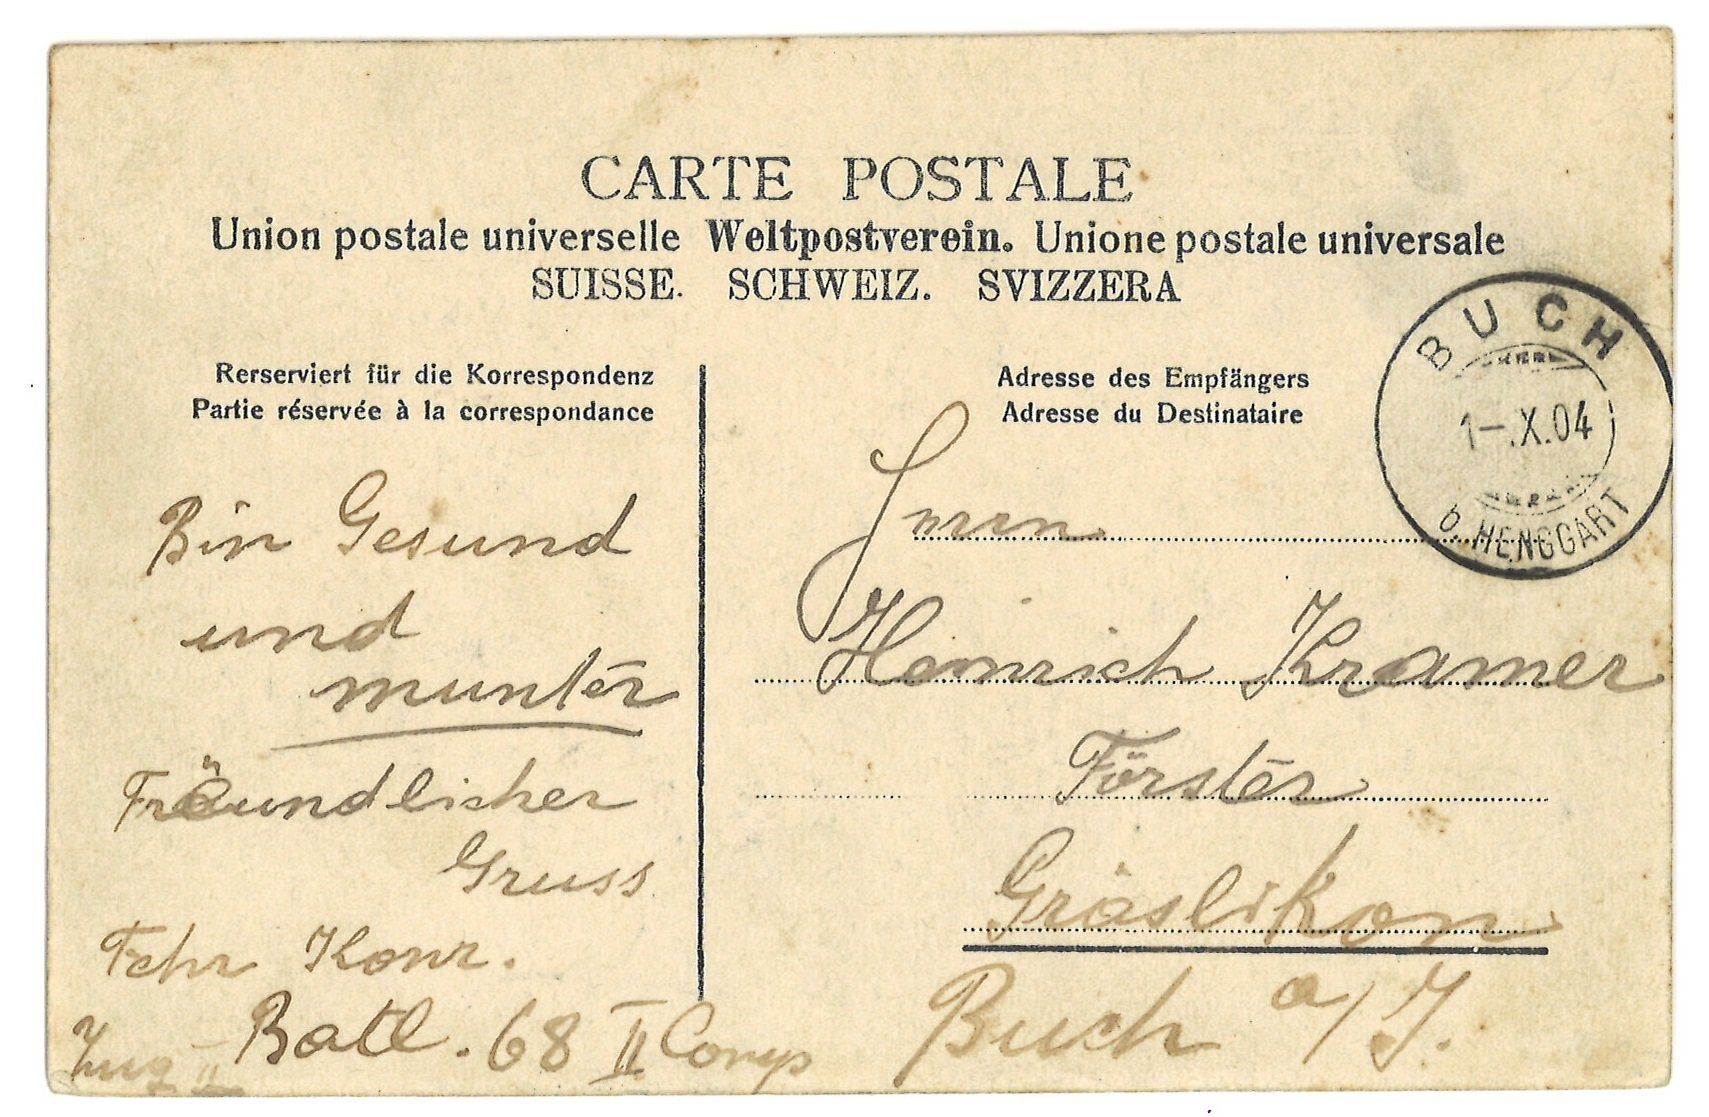 CARTE POSTALE
Union postale universelle Weltpostverein. Unione postale universale
SUISSE. SCHWEIZ. SVIZZERA
Rerserviert für die Korrespondenz
Partie réservée à la correspondance
Bin Gesund
und
munter
Freundlicher
Gruss
Fehr Konr.
Batl. 68 II Comp
Zug II
Adresse des Empfängers
Adresse du Destinataire
Herrn
Heinrich Kramer
Förster
Gräslikon
Buch a/J.
BUCH
1-.X.04
b. HENGGART